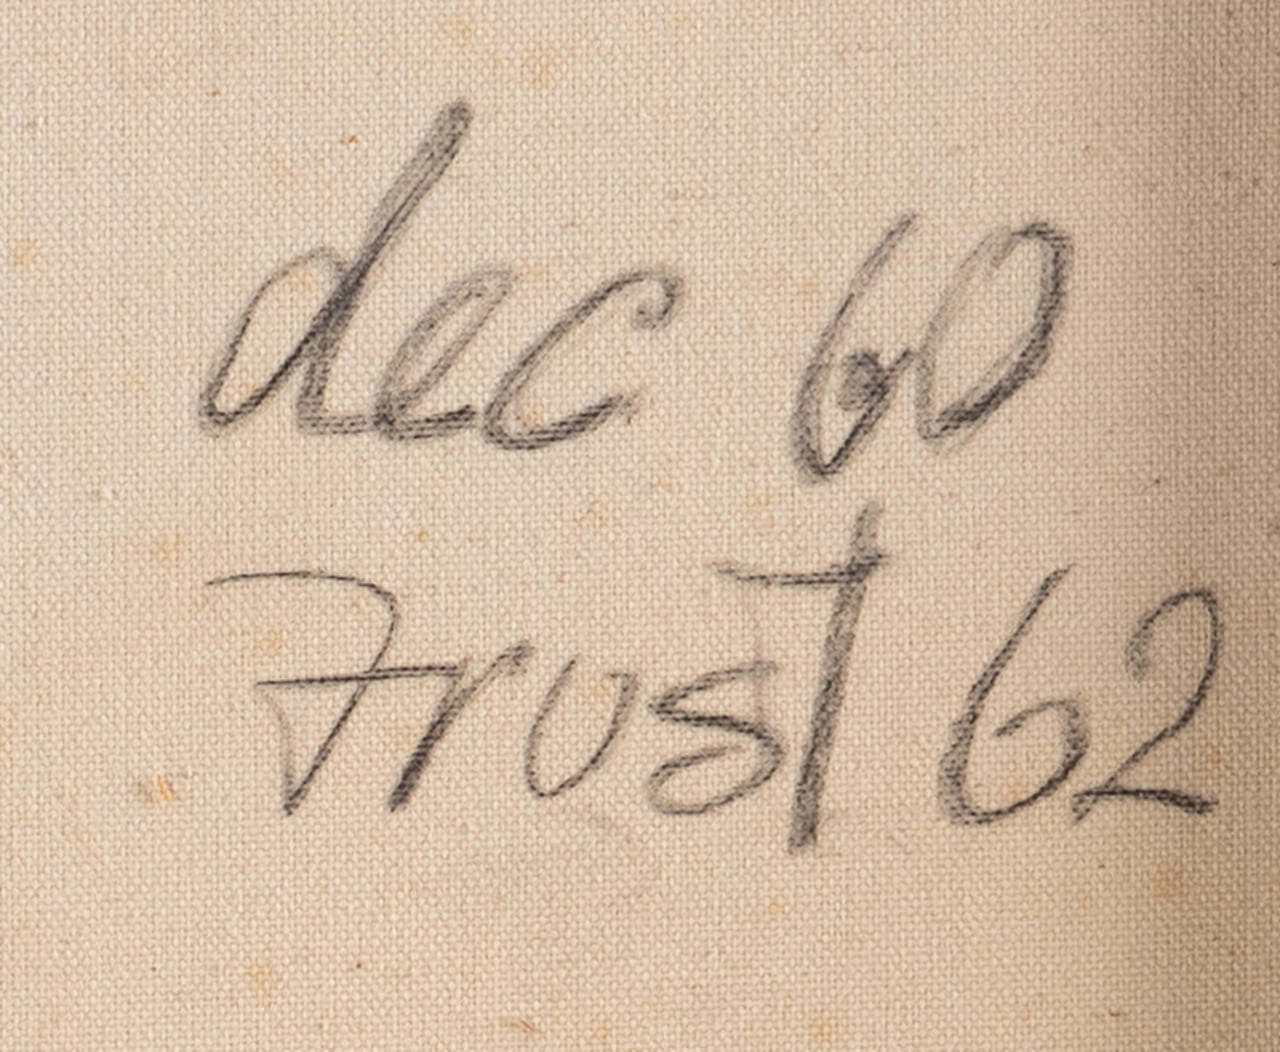 dec 60
Frust 62